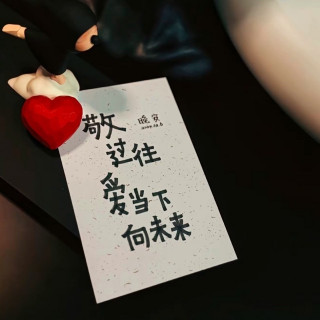 敬
晚安
过往
爱当下
向未来